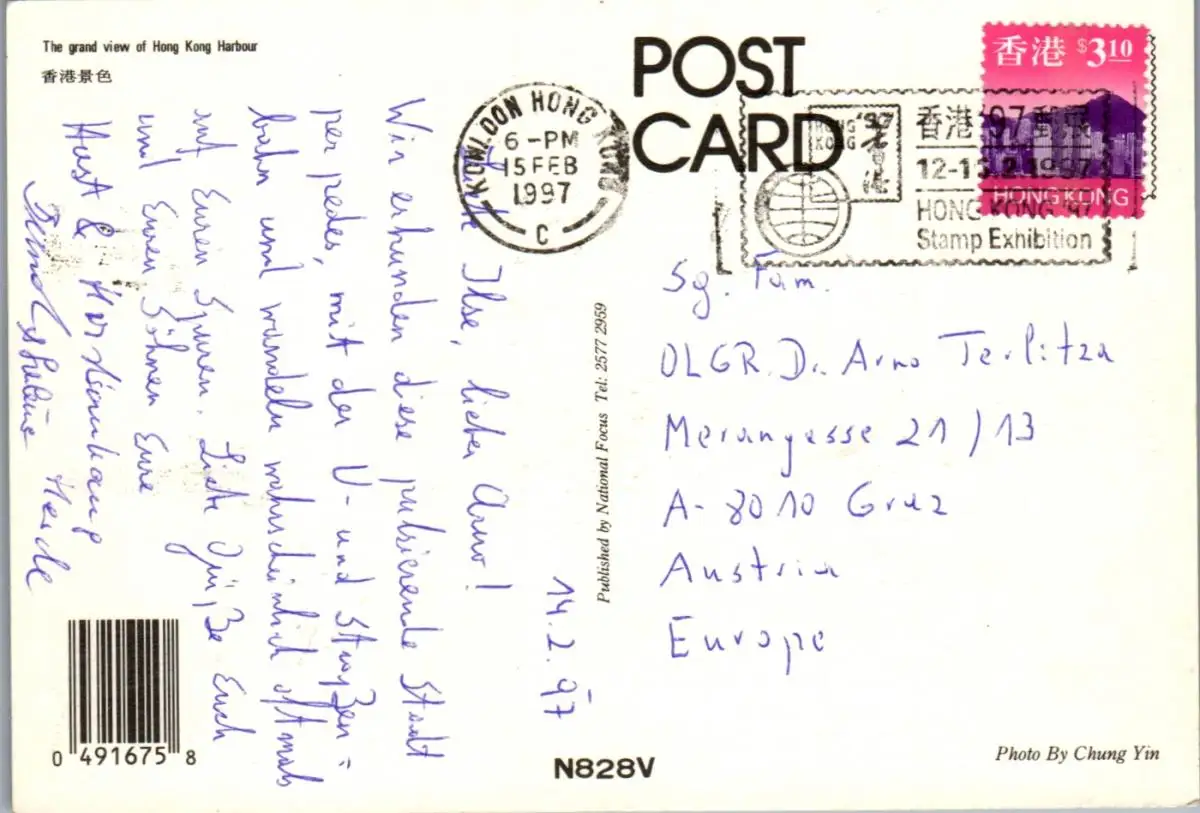 The grand view of Hong Kong Harbour
香港景色
POST
CARD
KOWLOON HONG KONG
6 -PM
15 FEB
1997
C
香港 $310
HONG KONG
HONG KONG '97
香港'97郵展
12-16.2.1997
HONG KONG '97
Stamp Exhibition
14.2.97
Liebe Ilse, lieber Arno!
Wir erkunden diese pulsierende Stadt
per pedes, mit der U- und Straßen=
bahn und wandeln wahrscheinlich oftmals
auf Euren Spuren. Liebe Grüße Euch
und Euren Söhnen Eure
Heide
Published by National Focus Tel: 2577 2959
Sg. Fam.
OLGR. Dr. Arno Terlitza
Merangasse 21/13
A-8010 Graz
Austria
Europe
0 491675 8
N828V
Photo By Chung Yin